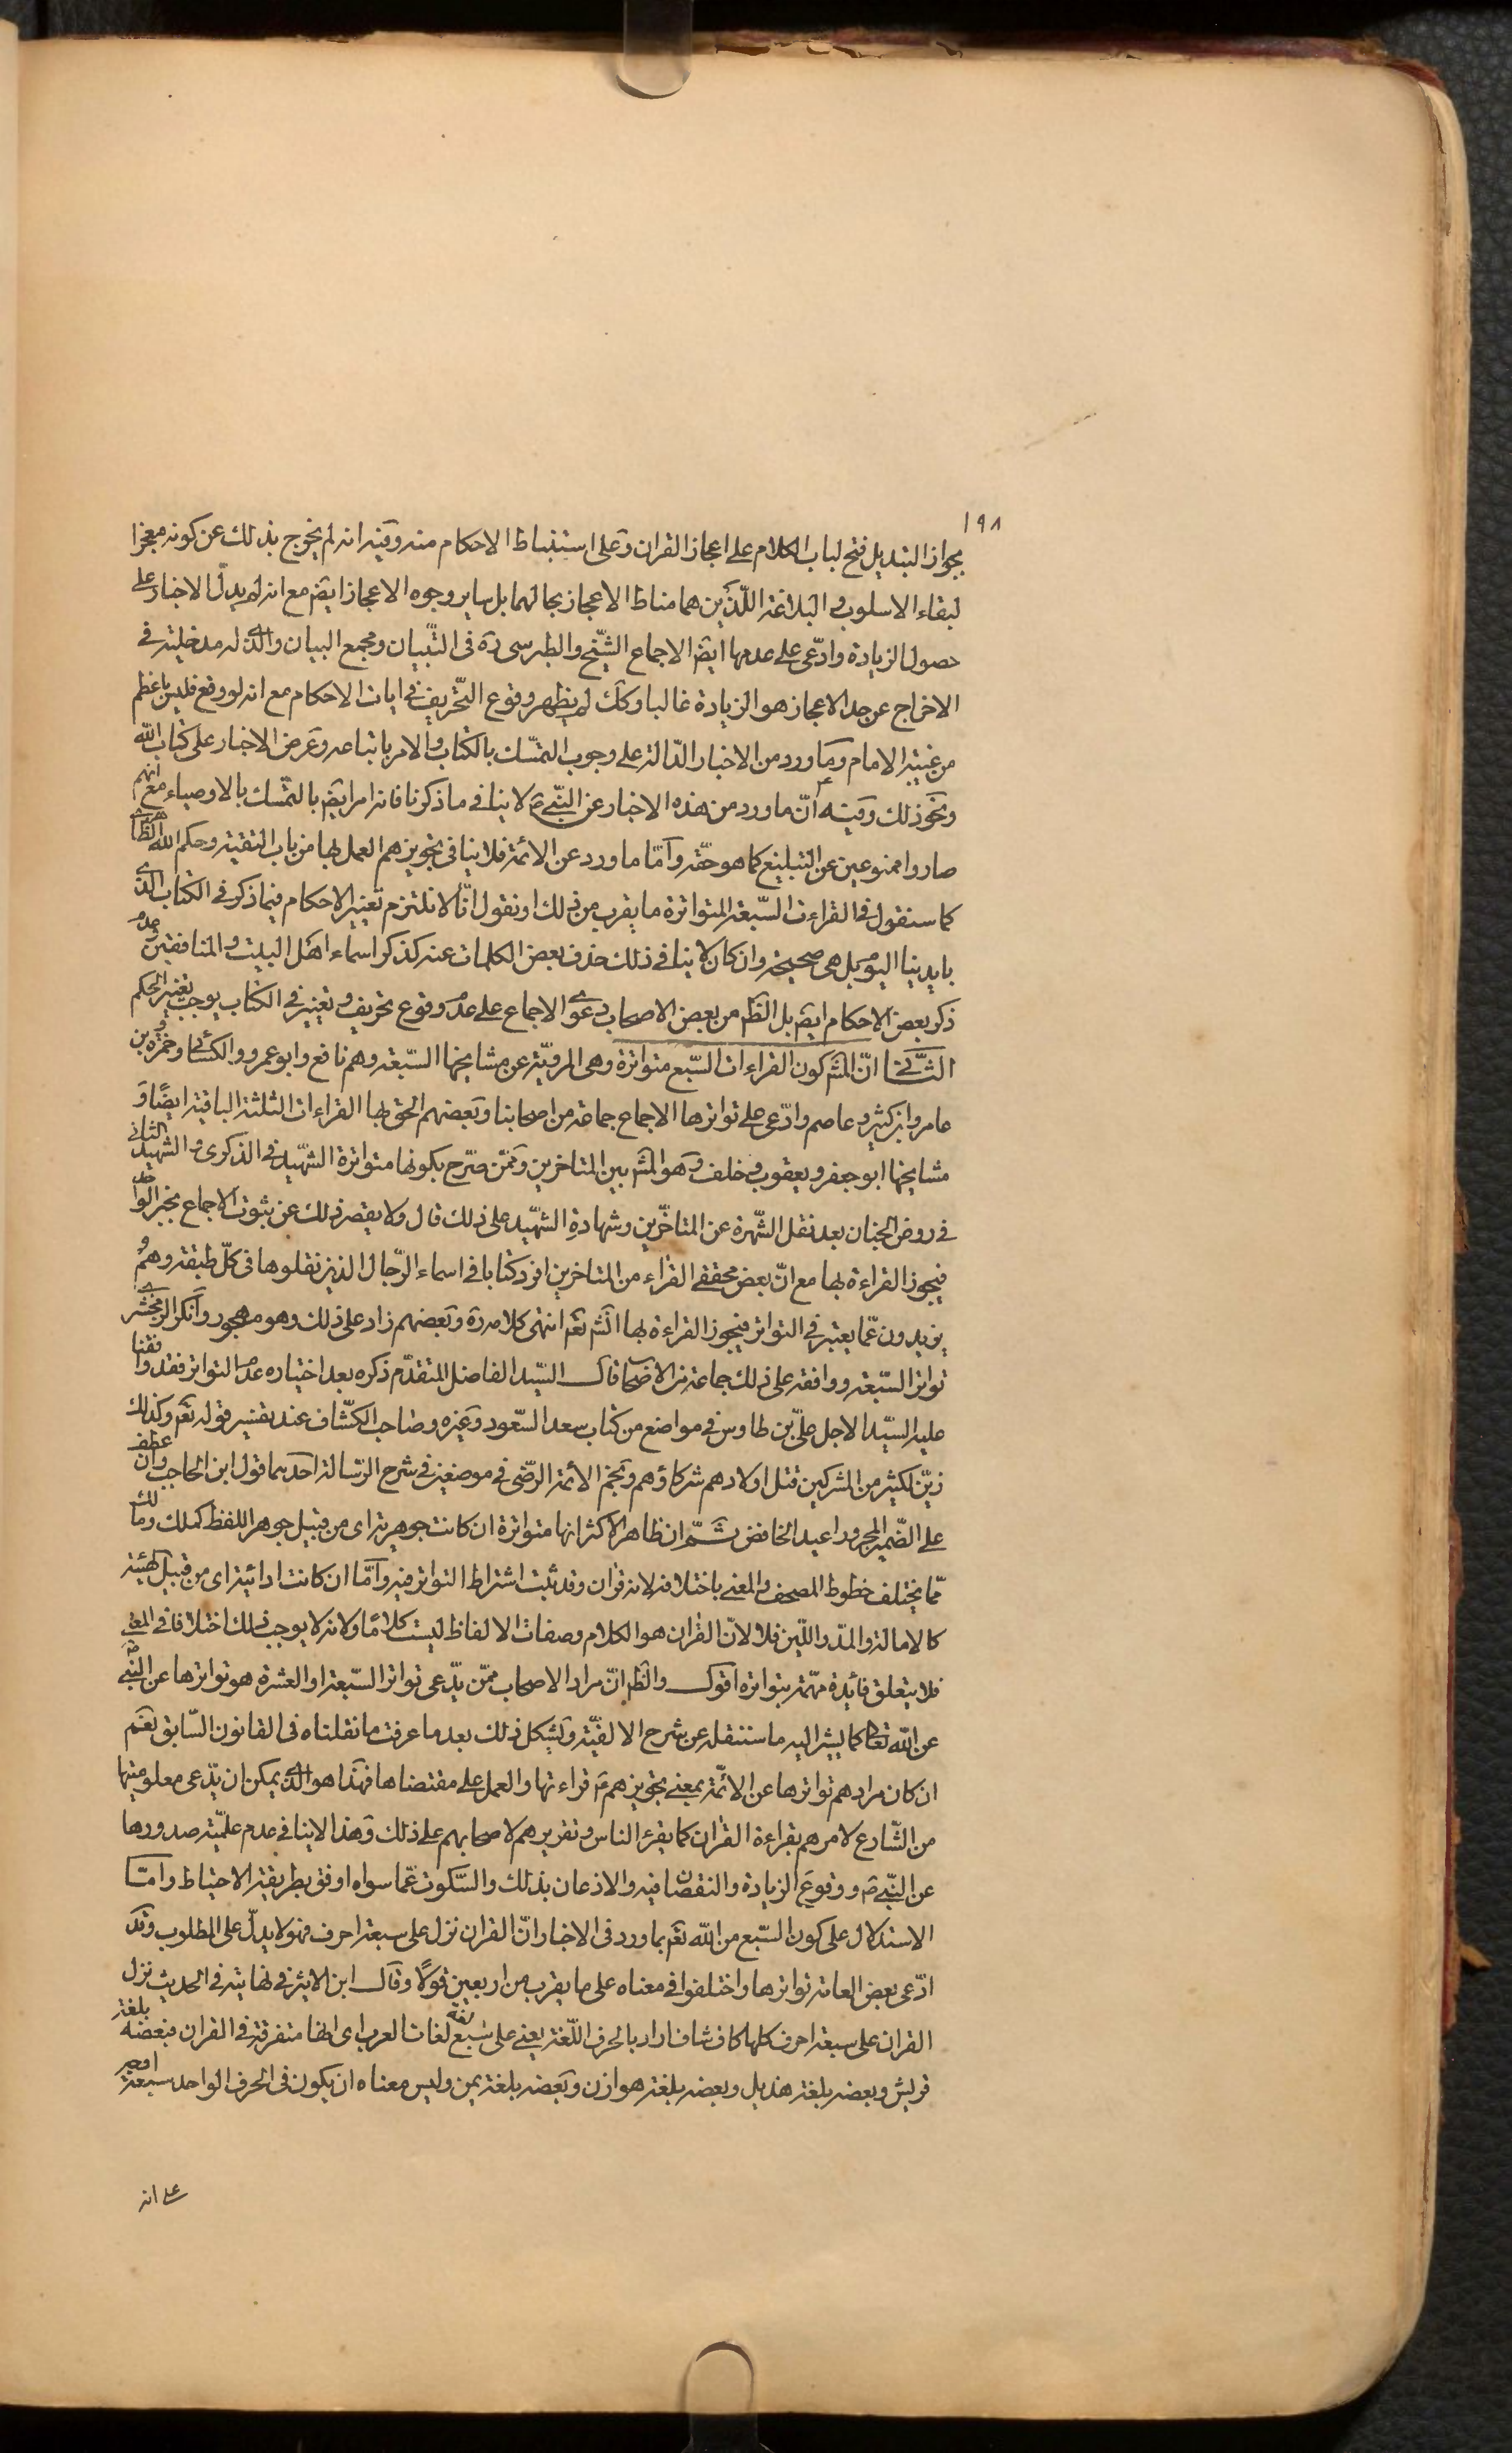 ١٩٨
بجواز التبديل فتح لباب الكلام على اعجاز القران وعلى استنباط الاحكام منه وفيه انه لم يخرج بذلك عن كونه معجزا
لبقاء الاسلوب والبلاغة اللّذين هما مناط الاعجاز بحالهما بل ساير وجوه الاعجاز ايضً مع انه لم يدلّ الاخبار على
حصول الزيادة وادّعى على عدمها ايضً الاجماع الشّيخ والطبرسى ره فى التّبيان ومجمع البيان والّذى له مدخلية فى
الاخراج عن حد الاعجاز هو الزيادة غالبا وكك لم يظهر وقوع التّحريف فى ايات الاحكام مع انه لو وقع فليس باعظم
من غيبة الامام وما ورد من الاخبار الدّالة على وجوب التمسّك بالكتاب والامر باتباعه وعرض الاخبار على كتاب الله
ونحو ذلك وفيه أنّ ما ورد من هذه الاخبار عن النّبى ص لا ينافى ما ذكرنا فانه امر ايضً بالتمسّك بالاوصياء مع انهم
صاروا ممنوعين عن التبليغ كما هو حقّه وامّا ما ورد عن الائمة فلا ينافى تجويزهم العمل بها من باب التقية وحكم الله الظاهرى
كما سنقول فى القراءت السّبعة المتواترة ما يقرب من ذلك او نقول انّا لا نلتزم تغيير الاحكام فيما ذكر فى الكتاب الّذى
بايدينا اليوم بل هى صحيحة وان كان لا ينافى ذلك حذف بعض الكلمات عنه كذكر اسماء اهل البيت والمنافقين وعدم
ذكر بعض الاحكام ايضً بل الظّ من بعض الاصحاب دعوى الاجماع على عدم وقوع تحريف وتغيير فى الكتاب يوجب تغيير الحكم
الثّانى انّ المشهور كون القراءات السّبع متواترة وهى المرويّة عن مشايخها السّبعة وهم نافع وابو عمرو والكسائى وحمزة وبن
عامر وابن كثير وعاصم وادّعى على تواترها الاجماع جماعة من اصحابنا وبعضهم الحق بها القراءات الثلثة الباقية ايضًا و
مشايخها ابو جعفر ويعقوب وخلف وهو المشهور بين المتاخرين وممّن صرّح بكونها متواترة الشّهيد فى الذكرى والشهيد الثانى
فى روض الجنان بعد نقل الشّهرة عن المتاخّرين وشهادة الشّهيد على ذلك قال ولا يقصر ذلك عن ثبوت الاجماع بخبر الواحد
فيجوز القراءة بها مع انّ بعض محققى القراء من المتاخرين افرد كتابا فى اسماء الرّجال الذين نقلوها فى كلّ طبقة وهم
يزيدون عمّا يعتبر فى التواتر فيجوز القراءة بها انشَ تعَ انتهى كلامه ره وبعضهم زاد على ذلك وهو مهجور وانكر الزمخشرى
تواتر السّبعة ووافقه على ذلك جماعة من الاصحاب قال السّيد الفاضل المتقدّم ذكره بعد اختياره عدم التواتر فقد وافقنا
عليه السّيد الاجل علىّ بن طاوس فى مواضع من كتاب سعد السّعود وغيره وصاحب الكشّاف عند تفسير قوله تعَ وكذلك
زيّن لكثير من المشركين قتل اولادهم شركاؤهم ونجم الائمة الرضى فى موضعين فى شرح الرّسالة احدهما قول ابن الحاجب وان عطف
على الضّمير المجرور اعيد الخافض ثمّ ان ظاهر الاكثر انها متواترة ان كانت جوهرية اى من قبيل جوهر اللفظ كملك ومالك
ممّا يختلف خطوط المصحف والمعنى باختلافه لانه قران وقد ثبت اشتراط التواتر فيه وامّا ان كانت ادائية اى من قبيل الهيئة
كالامالة والمدّ واللّين فلا لانّ القران هو الكلام وصفات الالفاظ ليست كلامًا ولانه لا يوجب ذلك اختلافا فى المعنى
فلا يتعلق فائدة مهمّة بتواتره اقول والظّ انّ مراد الاصحاب ممّن يدّعى تواتر السّبعة او العشرة هو تواترها عن النّبى ص
عن الله تعالى كما يشير اليه ما سننقله عن شرح الالفيّة ويشكل ذلك بعد ما عرفت ما نقلناه فى القانون السّابق نعم
ان كان مرادهم تواترها عن الائمّة بمعنى تجويزهم ع قراءتها والعمل على مقتضاها فهذا هو الّذى يمكن ان يدّعى معلوميتها
من الشّارع لامرهم بقراءة القران كما يقرء الناس وتقريرهم لاصحابهم على ذلك وهذا لا ينافى عدم علميّة صدورها
عن النّبى ص ووقوع الزيادة والنقصان فيه والاذعان بذلك والسّكوت عمّا سواه اوفق بطريقة الاحتياط وامّا
الاستدلال على كون السّبع من الله تعَ بما ورد فى الاخبار انّ القران نزل على سبعة احرف فهو لا يدلّ على المطلوب وقد
ادّعى بعض العامة تواترها واختلفوا فى معناه على ما يقرب من اربعين قولًا وقال ابن الاثير فى نهايته فى الحديث نزل
القران على سبعة احرف كلها كاف شاف اراد بالحرف اللّغة يعنى على سبع لغات العرب اى انها متفرقة فى القران فبعضه بلغة
قريش وبعضه بلغة هذيل وبعضه بلغة هوازن وبعضه بلغة يمن وليس معناه ان يكون فى الحرف الواحد سبعة اوجه
على انه